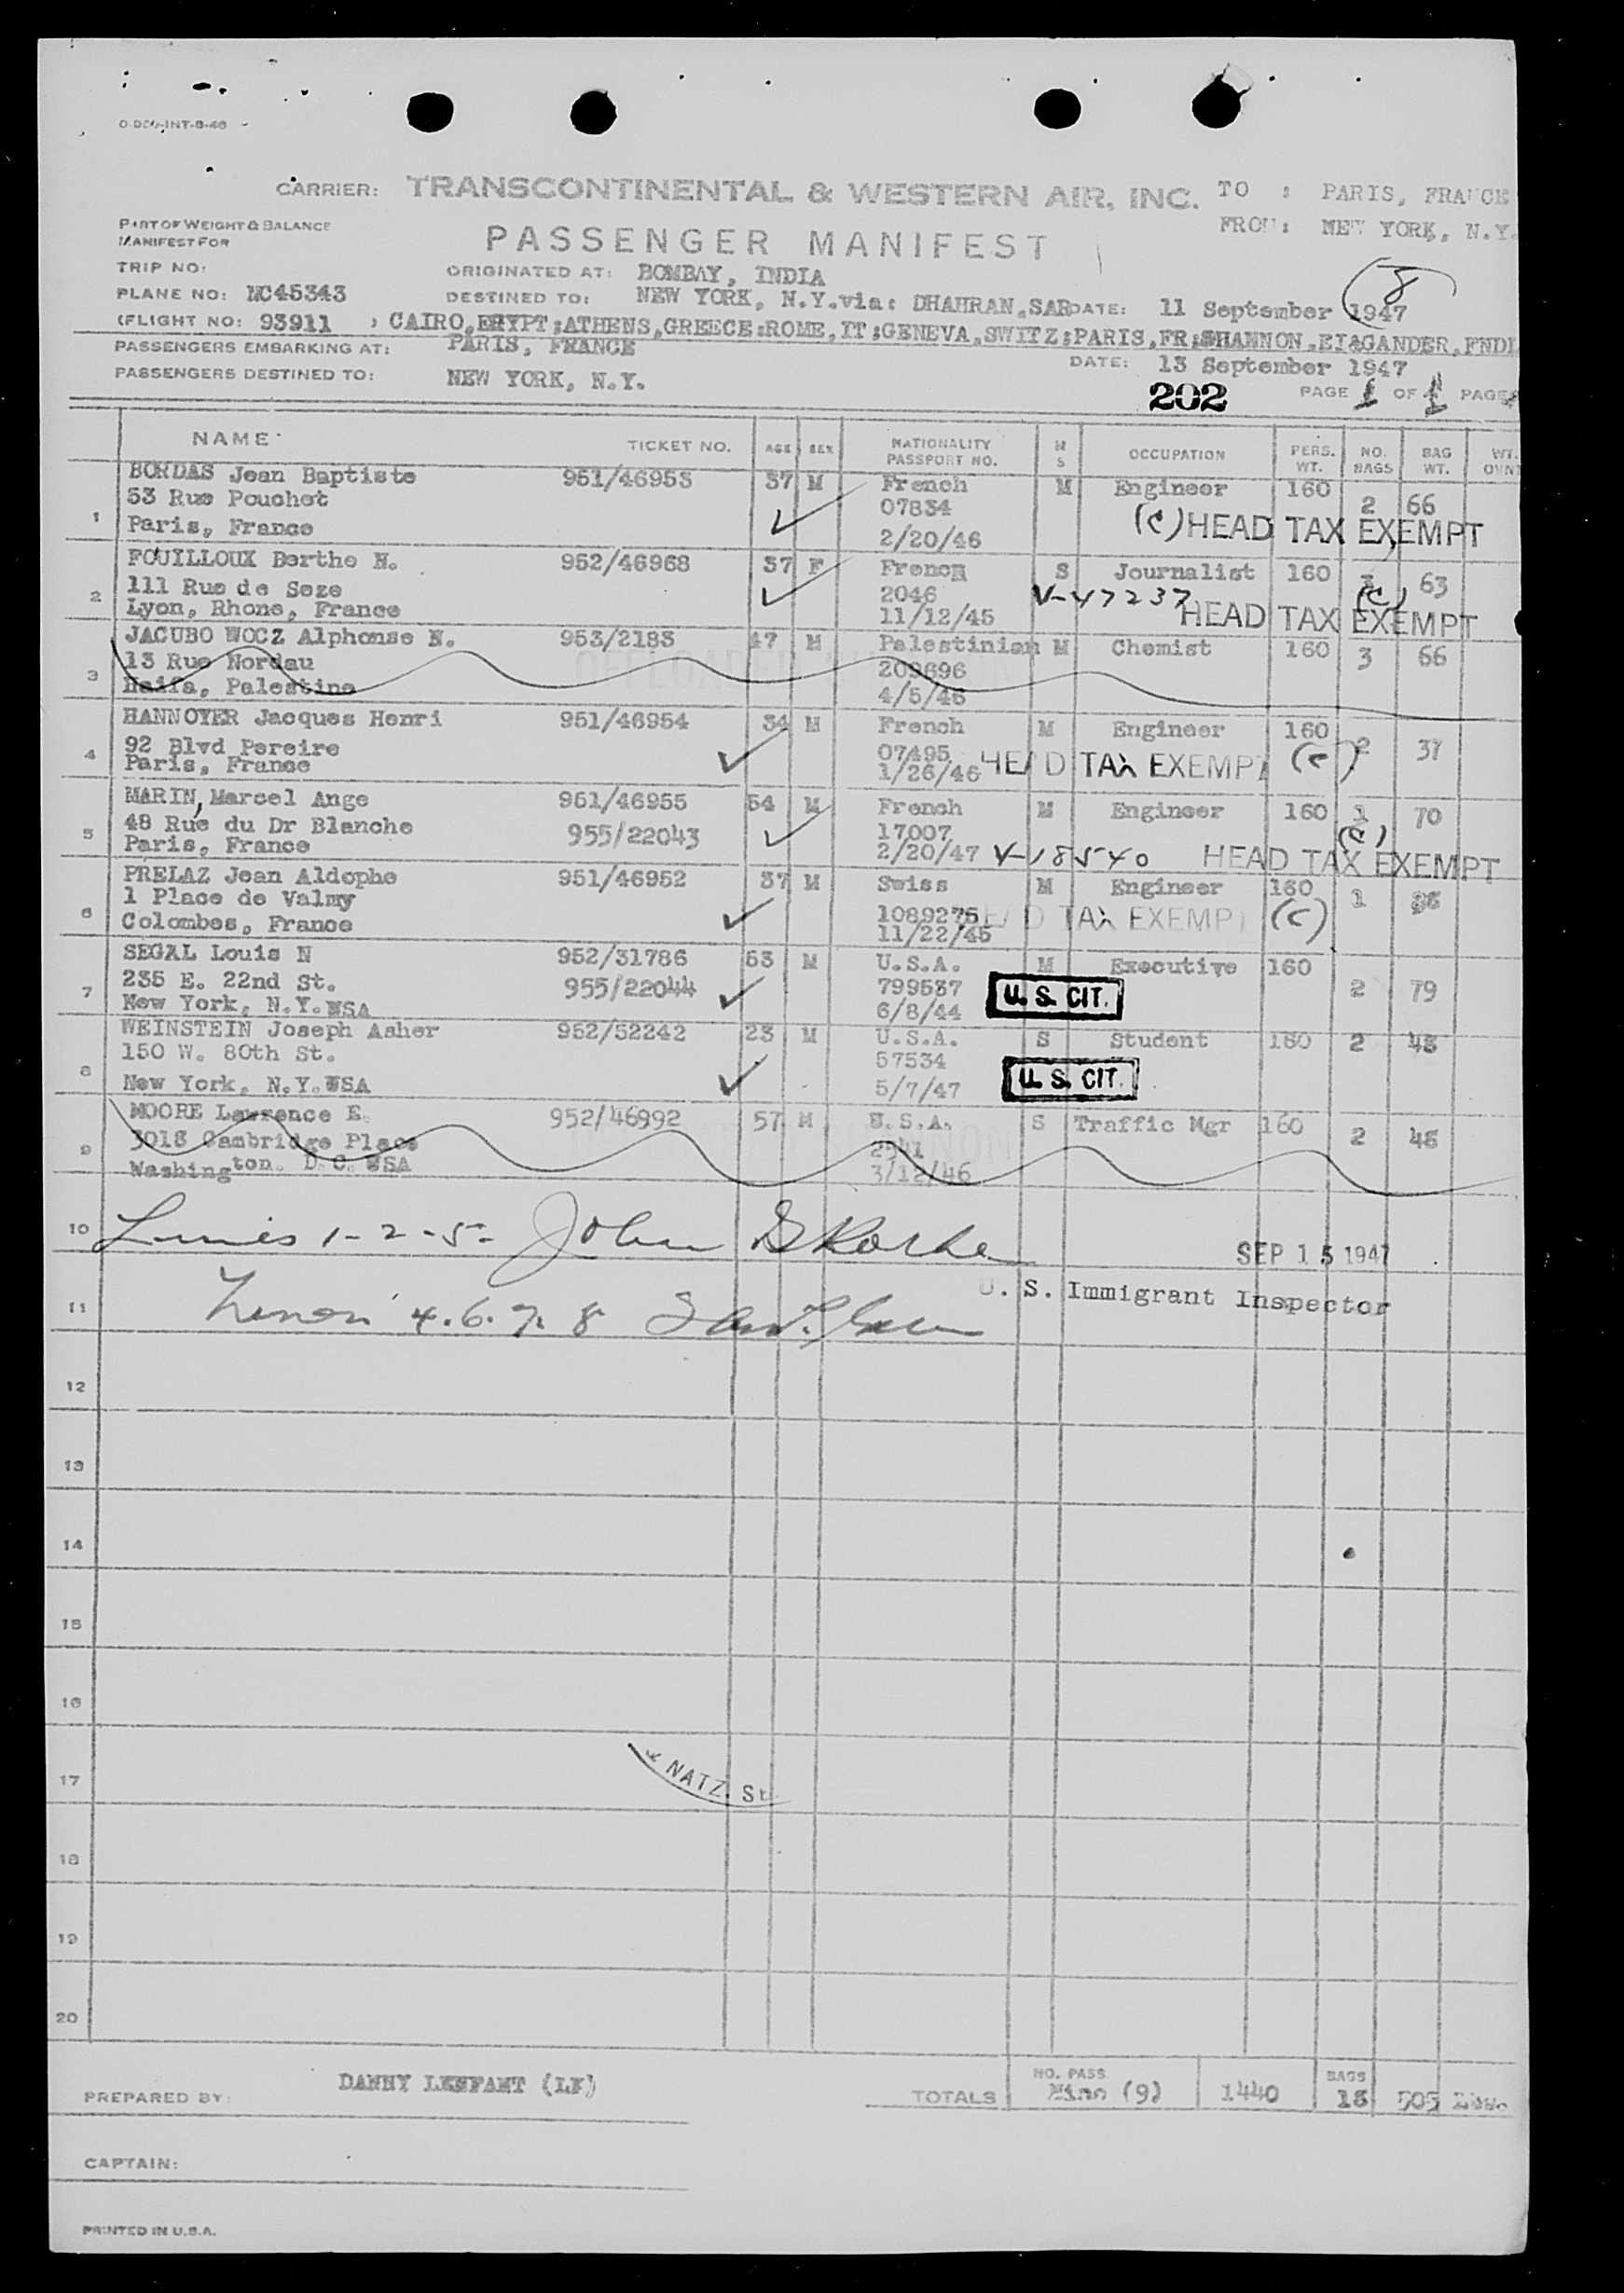 CARRIER: TRANSCONTINENTAL & WESTERN AIR, INC. TO : PARIS, FRANCE
FROM: NEW YORK, N.Y.
PART OF WEIGHT & BALANCE
MANIFEST FOR
PASSENGER MANIFEST
8
TRIP NO:
ORIGINATED AT: BOMBAY, INDIA
PLANE NO: NC45343
DESTINED TO: NEW YORK, N.Y.via: DHAHRAN,SAR DATE: 11 September 1947
(FLIGHT NO: 93911 ) CAIRO,EGYPT;ATHENS,GREECE:ROME,IT;GENEVA,SWITZ;PARIS,FR;SHANNON,EI&GANDER,FNDL
PASSENGERS EMBARKING AT: PARIS, FRANCE
DATE: 13 September 1947
PASSENGERS DESTINED TO: NEW YORK, N.Y.
202 PAGE 1 OF 1 PAGES
NAME TICKET NO. AGE SEX NATIONALITY PASSPORT NO. M S OCCUPATION PERS. WT. NO. BAGS BAG WT. WT.
BORDAS Jean Baptiste 951/46953 37 M French M Engineer 160
53 Rue Pouchet 07834 2 66
1 Paris, France 2/20/46 (C) HEAD TAX EXEMPT
FOUILLOUX Berthe N. 952/46968 37 F French S Journalist 160
111 Rue de Seze 2046 V-47237 (C) 63
2 Lyon, Rhone, France 11/12/45 HEAD TAX EXEMPT
JACUBO WOCZ Alphonse N. 953/2183 47 M Palestinian M Chemist 160
13 Rue Nordau 209696 3 66
3 Haifa, Palestine 4/5/46
HANNOYER Jacques Henri 951/46954 34 M French M Engineer 160
92 Blvd Pereire 07495 2 37
4 Paris, France 1/26/46 HEAD TAX EXEMPT (C)
MARIN, Marcel Ange 951/46955 54 M French M Engineer 160 1 70
48 Rue du Dr Blanche 955/22043 17007 (C)
5 Paris, France 2/20/47 V-18540 HEAD TAX EXEMPT
PRELAZ Jean Aldophe 951/46952 37 M Swiss M Engineer 160
1 Place de Valmy 1089275 1
6 Colombes, France 11/22/45 HEAD TAX EXEMPT (C)
SEGAL Louis N 952/31786 53 M U.S.A. M Executive 160
235 E. 22nd St. 955/22044 799537 2 79
7 New York, N.Y.USA 6/8/44 U. S. CIT.
WEINSTEIN Joseph Asher 952/52242 23 M U.S.A. S Student 160 2 43
150 W. 80th St. 57534
8 New York, N.Y.USA 5/7/47 U. S. CIT.
MOORE Lawrence E. 952/46992 57 M U.S.A. S Traffic Mgr 160
3018 Cambridge Place 2541 2 45
9 Washington. D.C. USA 3/12/46
10 Lines 1-2-5- John SEP 15 1947
U. S. Immigrant Inspector
11 4.6.7.8
12
13
14
15
16
17
NATZ. St
18
19
20
PREPARED BY: DANNY LENFANT (LF)
TOTALS NO. PASS Nine (9) 1440 BAGS 505
CAPTAIN:
PRINTED IN U.S.A.